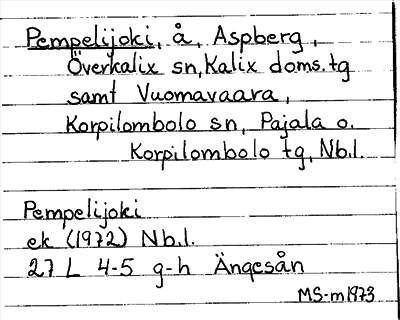 Pempelijoki, å, Aspberg,
Överkalix sn, Kalix doms.tg
samt Vuomavaara,
Korpilombolo sn, Pajala o.
Korpilombolo tg, Nb.l.
Pempelijoki
ek (1972) Nb.l.
27 L 4-5 g-h Ängesån
MS-m 1973